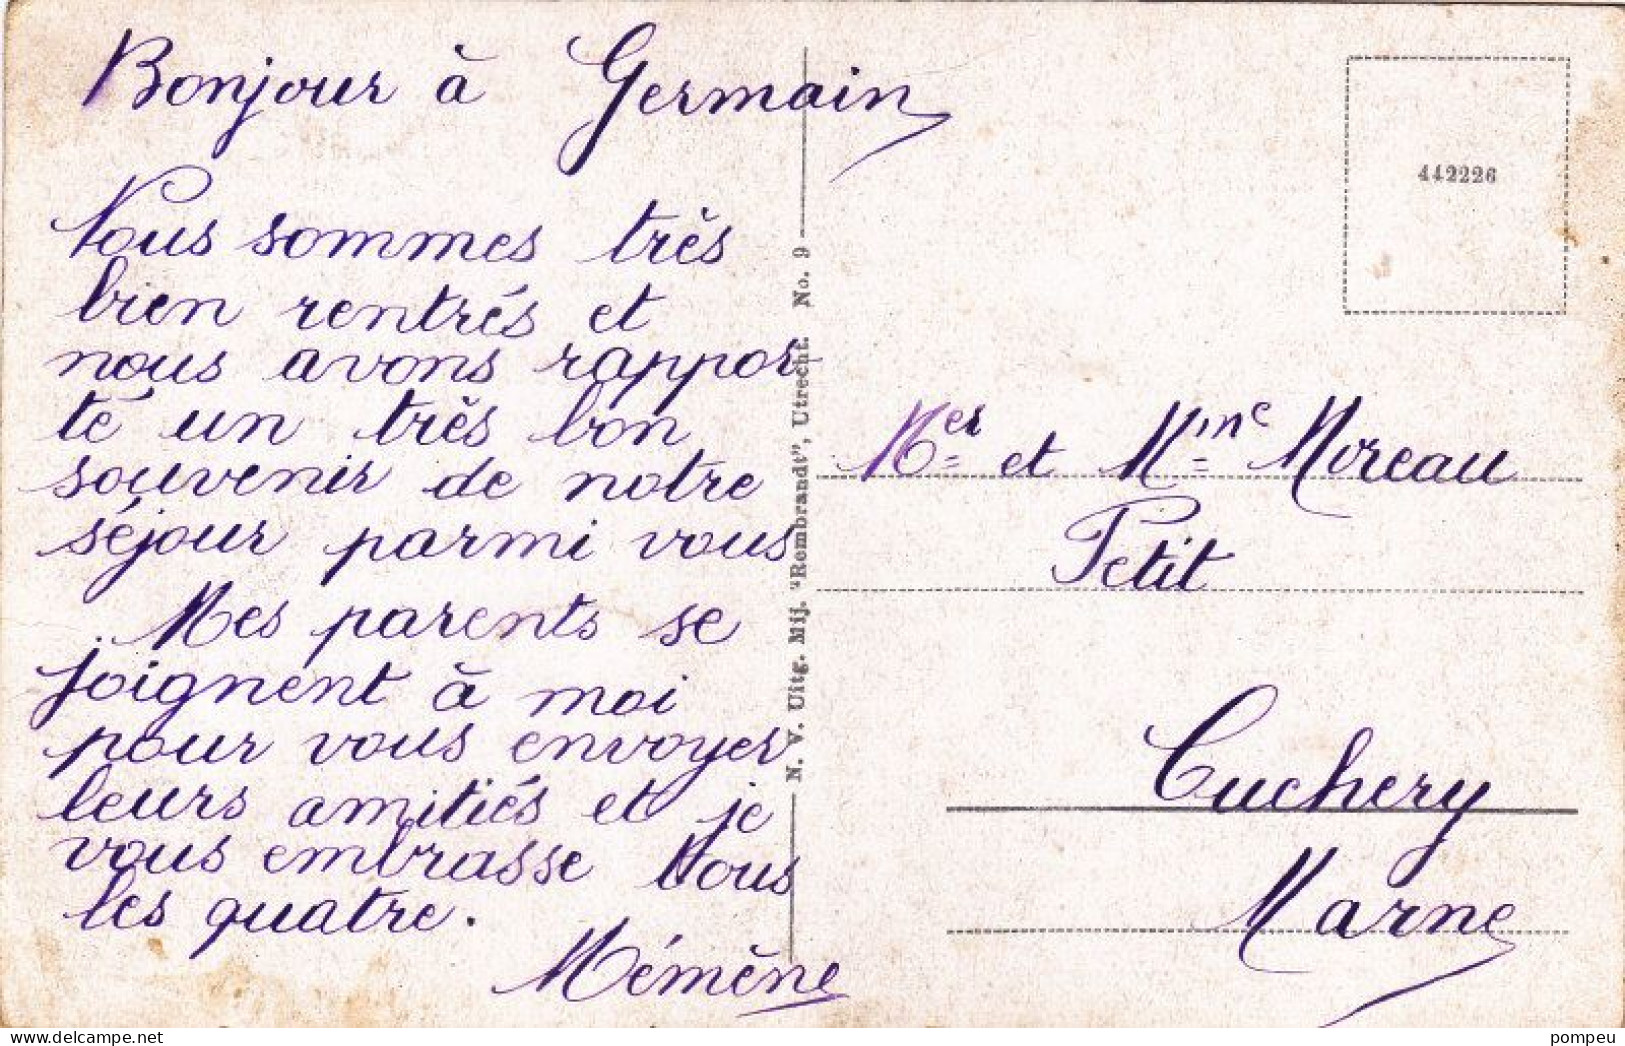 Bonjour à Germain
Nous sommes très
bien rentrés et
nous avons rappor
té un très bon
souvenir de notre
séjour parmi vous
Mes parents se
joignent à moi
pour vous envoyer
leurs amitiés et je
vous embrasse tous
les quatre.
Mémène
N. V. Uitg. Mij. "Rembrandt", Utrecht. No. 9
442226
Mer et Mme Moreau
Petit
Cuchery
Marne
pompeu